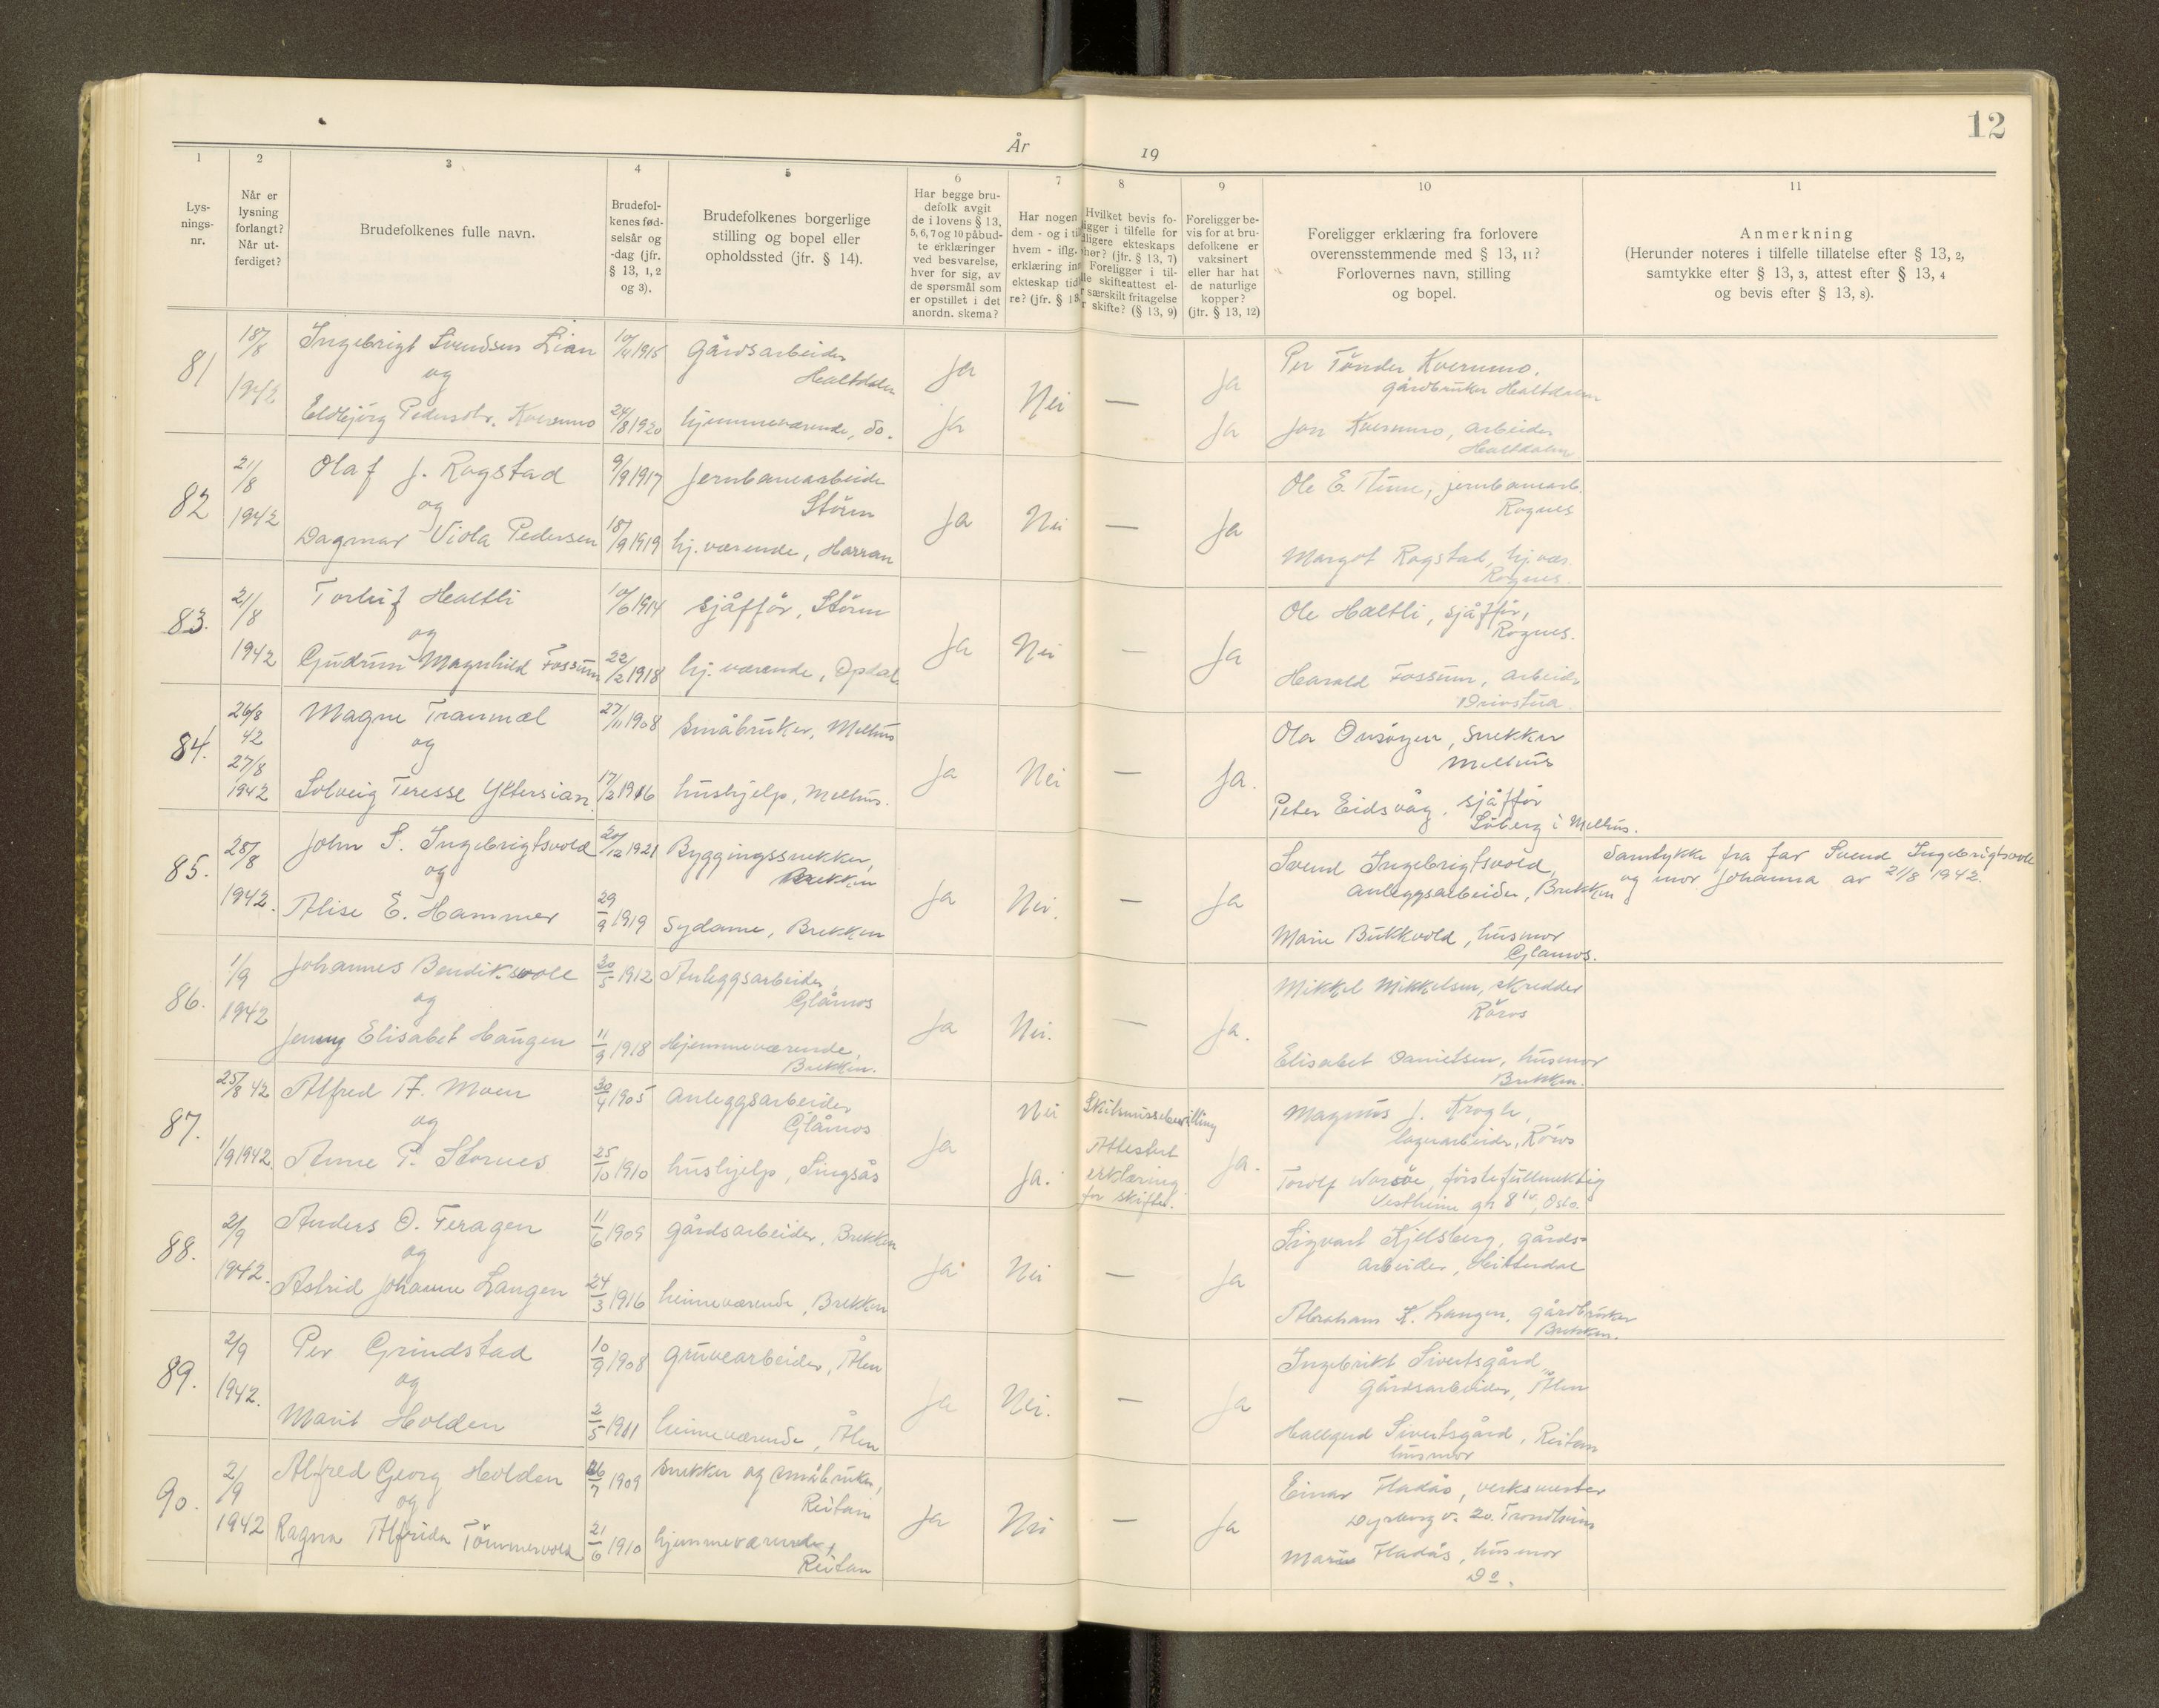 12
År 19
1 2 3 4 5 6 7 8 9 10 11
Lys-
nings-
nr.
Når er
lysning
forlangt?
Når ut-
ferdiget?
Brudefolkenes fulle navn.
Brudefol-
kenes fød-
selsår og
-dag (jfr.
§ 13, 1, 2
og 3).
Brudefolkenes borgerlige
stilling og bopel eller
opholdssted (jfr. § 14).
Har begge bru-
defolk avgit
de i lovens § 13,
5, 6, 7 og 10 påbud-
te erklæringer
ved besvarelse,
hver for sig, av
de spørsmål som
er opstillet i det
anordn. skema?
Har nogen
dem - og i ti
hvem - iflg.
erklæring inn
ekteskap tid
re? (jfr. § 13,
Hvilket bevis fo-
ligger i tilfelle for
dligere ekteskaps
hør? (jfr. § 13, 7)
Foreligger i til-
lle skifteattest el-
r særskilt fritagelse
r skifte? (§ 13, 9)
Foreligger be-
vis for at bru-
defolkene er
vaksinert
eller har hat
de naturlige
kopper?
(jfr. § 13, 12)
Foreligger erklæring fra forlovere
overensstemmende med § 13, 11?
Forlovernes navn, stilling
og bopel.
Anmerkning
(Herunder noteres i tilfelle tillatelse efter § 13, 2,
samtykke efter § 13, 3, attest efter § 13, 4
og bevis efter § 13, 8).
81
18/8
1942
Ingebrigt Svendsen Lian
og
Eldbjørg Pedersdtr. Kvernmo
10/11 1915
24/8 1920
Gårdsarbeider
Haltdalen
hjemmeværende, do.
Ja
Ja
Nei
—
Ja
Ja
Per Tönder Kvernmo,
gårdbruker Haltdalen
Jon Kvernmo, arbeider
Haltdalen
82
21/8
1942
Olaf J. Rogstad
og
Dagmar Viola Pedersen
9/9 1917
18/9 1919
Jernbanearbeider
Stören
hj. værende, Harran
Ja
Nei
—
Ja
Ole E. , jernbanearb.
Rognes
Margot Rogstad, hj.vær.
Rognes.
83.
21/8
1942
Torleif Haltli
og
Gudrun Magnhild Fossum
10/6 1914
22/2 1918
sjåffør, Stören
hj. værende, Opdal.
Ja
Nei
—
Ja
Ole Haltli, sjåffør,
Rognes.
Harald Fossum, arbeider
Drivstua.
84.
26/8
42
27/8
1942
Magne Tranmæl
og
Solveig Teresse Yttersian.
27/11 1908
17/2 1916
Småbruker, Melhus
hushjelp, Melhus.
Ja
Nei
—
Ja.
Ola Onsöyen, snekker
Melhus
Peter Eidsvåg, sjåffør
Söberg i Melhus.
85.
28/8
1942.
John S. Ingebrigtsvold
og
Alise E. Hammer
20/12 1921
29/9 1919
Byggingssnekker,
Brekken
Sydame, Brekken
Ja
Nei.
—
Ja
Svend Ingebrigtsvold,
anleggsarbeider, Brekken
Marie Bukkvold, husmor
Glåmos.
Samtykke fra far Svend Ingebrigtsvold
og mor Johanna av 21/8 1942.
86.
1/9
1942
Johannes Bendiksvoll
og
Jenny Elisabet Haugen
30/5 1912
11/9 1918
Anleggsarbeider,
Glåmos
Hjemmeværende,
Brekken.
Ja
Nei.
—
Ja.
Mikkel Mikkelsen, skredder
Röros
Elisabet Danielsen, husmor
Brekken.
87.
25/8 42
1/9 1942.
Alfred A. Moen
og
Anne P. Stornes
30/4 1905
25/10 1910
anleggsarbeider
Glåmos
hushjelp, Singsås
Ja
Nei
Ja.
Skilsmissebevilling
Attestert
erklæring
for skifte.
Ja.
Magnus J. Krogh,
lagerarbeider, Röros
Torolf , förstefullmektig
Vestheim gt 8 IV, Oslo.
88.
2/9
1942.
Anders O. Feragen
og
Astrid Johanne Langen
11/6 1909
24/3 1916
gårdsarbeider, Brekken
heimeværende, Brekken
Ja
Nei
—
Ja
Sigvart Kjelsberg, gårds-
arbeider, Hitterdal
Abraham K. Langen, gårdbruker
Brekken.
89.
2/9
1942.
Per Grindstad
og
Marit Holden
10/9 1908
2/5 1911
gruvearbeider, Ålen
heimeværende, Ålen
Ja
Nei.
—
Ja
Ingebrikt Sivertsgård,
Gårdsarbeider, Ålen
Hallgerd Sivertsgård, Reitan
husmor
90.
2/9
1942
Alfred Georg Holden
og
Ragna Alfrida Tömmervold
26/7 1909
21/6 1910
snekker og småbruker,
Reitan
hjemmeværende,
Reitan
Ja
Nei
—
Ja
Einar Fladås, verksmester
Dyrborg v. 20. Trondheim
Marie Fladås, husmor
Do.